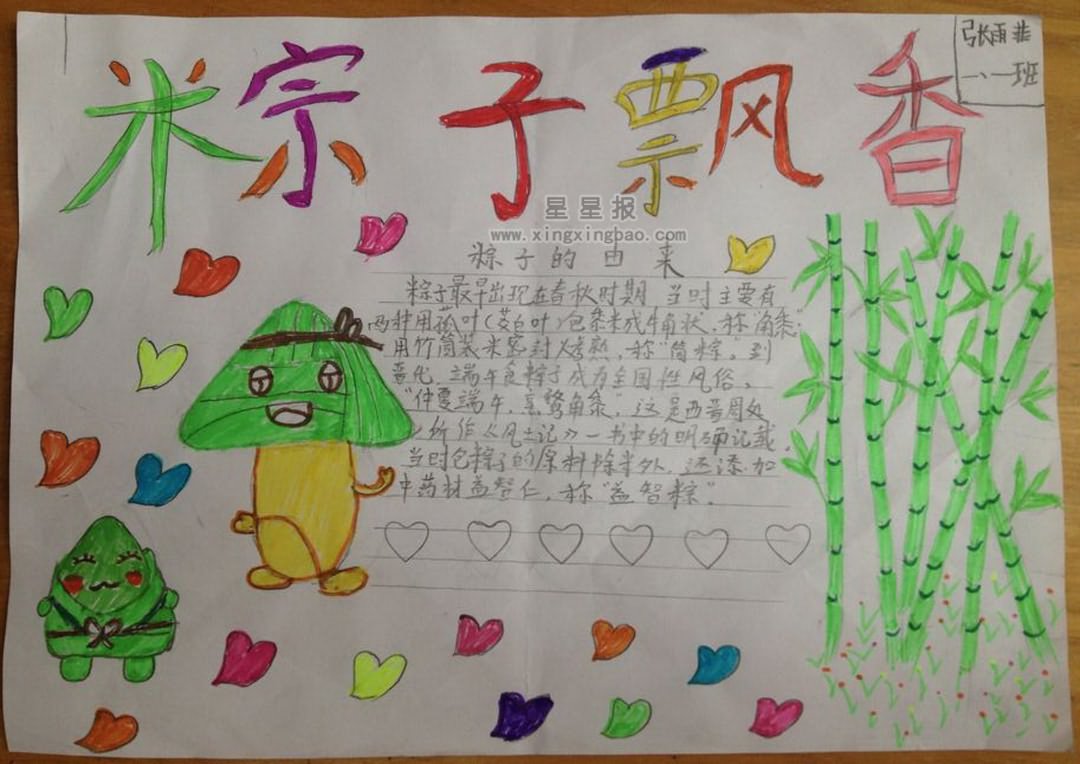 粽子飘香
张雨非
一、一班
星星报
www.xingxingbao.com
粽子的由来
粽子最早出现在春秋时期,当时主要有
两种用菰叶(茭白叶)包黍米成牛角状,称"角黍";
用竹筒装米密封烤熟,称"筒粽。到
晋代,端午食粽子成为全国性风俗。
"仲夏端午,烹鹜角黍",这是西晋周处
所作《风土记》一书中的明确记载,
当时包粽子的原料除米外,还添加
中药材益智仁,称"益智粽"。